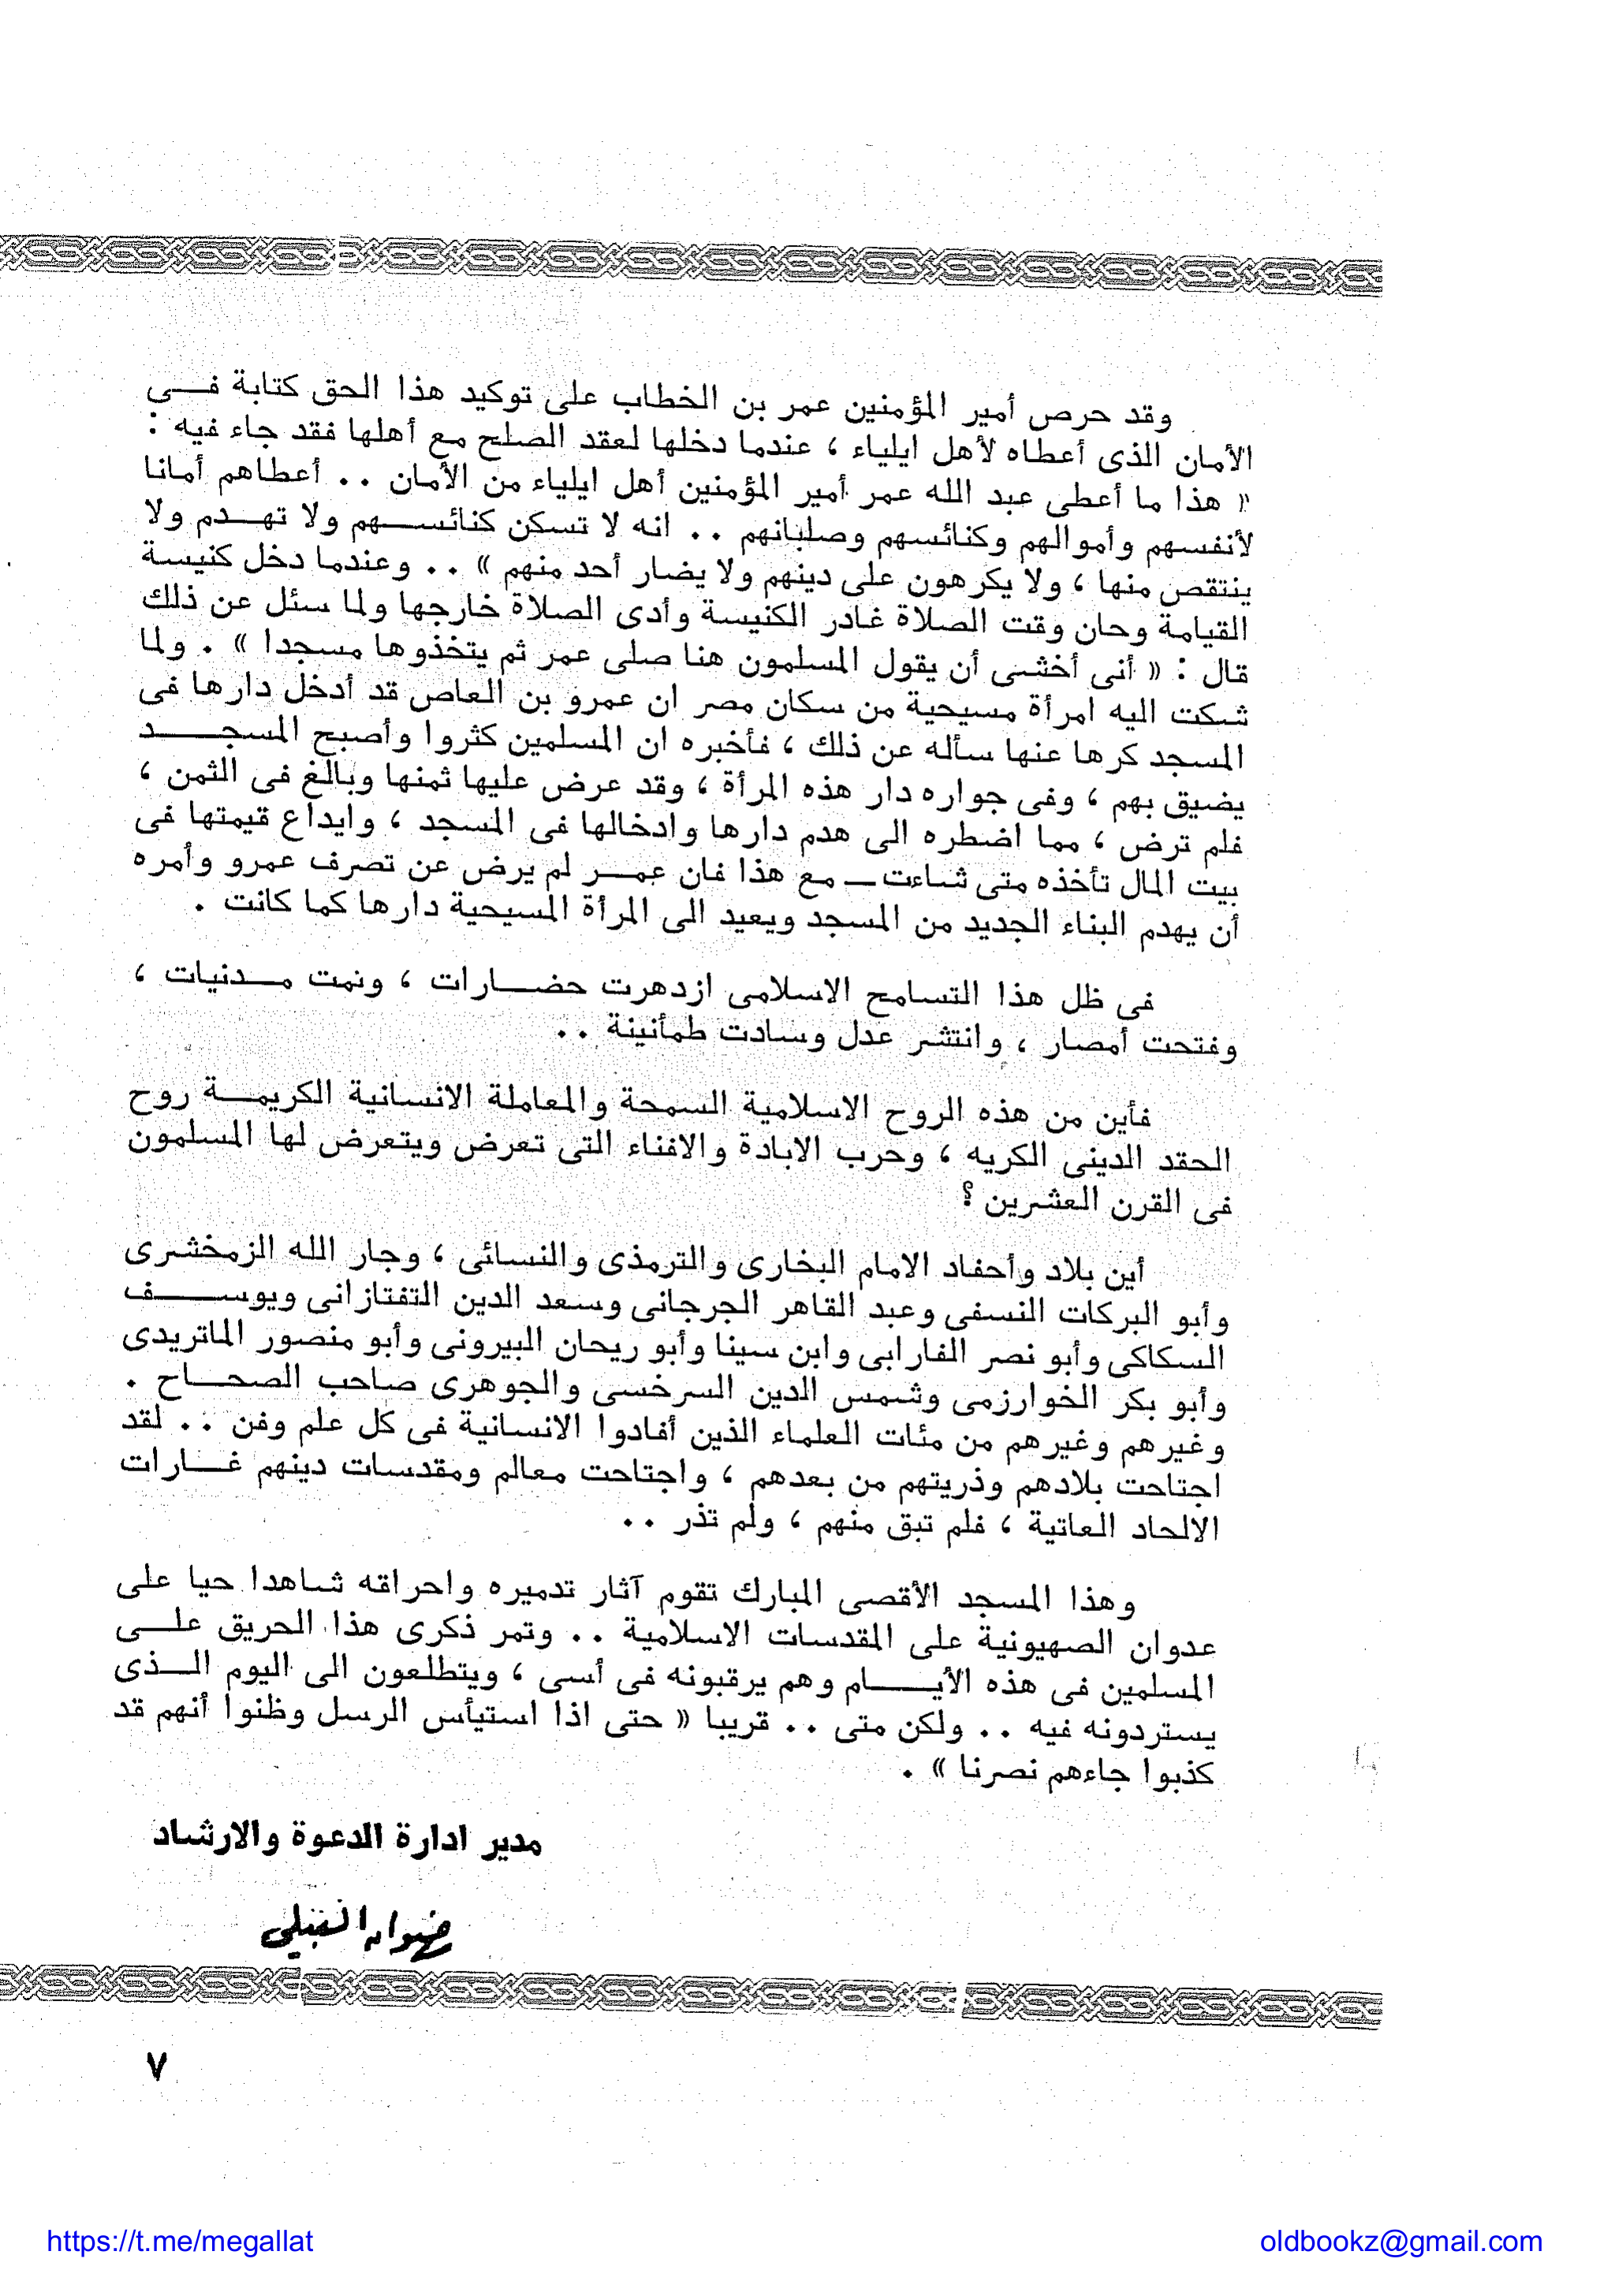 وقد حرص أمير المؤمنين عمر بن الخطاب على توكيد هذا الحق كتابة فى
الأمان الذى أعطاه لأهل ايلياء ، عندما دخلها لعقد الصلح مع أهلها فقد جاء فيه :
« هذا ما أعطى عبد الله عمر أمير المؤمنين أهل ايلياء من الأمان .. أعطاهم أمانا
لأنفسهم وأموالهم وكنائسهم وصلبانهم .. انه لا تسكن كنائسهم ولا تهدم ولا
ينتقص منها ، ولا يكرهون على دينهم ولا يضار أحد منهم » .. وعندما دخل كنيسة
القيامة وحان وقت الصلاة غادر الكنيسة وأدى الصلاة خارجها ولما سئل عن ذلك
قال : « أنى أخشى أن يقول المسلمون هنا صلى عمر ثم يتخذوها مسجدا » . ولما
شكت اليه امرأة مسيحية من سكان مصر ان عمرو بن العاص قد أدخل دارها فى
المسجد كرها عنها سأله عن ذلك ، فأخبره ان المسلمين كثروا وأصبح المسجد
يضيق بهم ، وفى جواره دار هذه المرأة ، وقد عرض عليها ثمنها وبالغ فى الثمن ،
فلم ترض ، مما اضطره الى هدم دارها وادخالها فى المسجد ، وايداع قيمتها فى
بيت المال تأخذه متى شاءت ــ مع هذا فان عمر لم يرض عن تصرف عمرو وأمره
أن يهدم البناء الجديد من المسجد ويعيد الى المرأة المسيحية دارها كما كانت .
فى ظل هذا التسامح الاسلامى ازدهرت حضارات ، ونمت مدنيات ،
وفتحت أمصار ، وانتشر عدل وسادت طمأنينة ..
فأين من هذه الروح الاسلامية السمحة والمعاملة الانسانية الكريمة روح
الحقد الدينى الكريه ، وحرب الابادة والافناء التى تعرض ويتعرض لها المسلمون
فى القرن العشرين ؟
أين بلاد وأحفاد الامام البخارى والترمذى والنسائى ، وجار الله الزمخشرى
وأبو البركات النسفى وعبد القاهر الجرجانى وسعد الدين التفتازانى ويوسف
السكاكى وأبو نصر الفارابى وابن سينا وأبو ريحان البيرونى وأبو منصور الماتريدى
وأبو بكر الخوارزمى وشمس الدين السرخسى والجوهرى صاحب الصحاح .
وغيرهم وغيرهم من مئات العلماء الذين أفادوا الانسانية فى كل علم وفن .. لقد
اجتاحت بلادهم وذريتهم من بعدهم ، واجتاحت معالم ومقدسات دينهم غارات
الالحاد العاتية ، فلم تبق منهم ، ولم تذر ..
وهذا المسجد الأقصى المبارك تقوم آثار تدميره واحراقه شاهدا حيا على
عدوان الصهيونية على المقدسات الاسلامية .. وتمر ذكرى هذا الحريق على
المسلمين فى هذه الأيام وهم يرقبونه فى أسى ، ويتطلعون الى اليوم الذى
يستردونه فيه .. ولكن متى .. قريبا « حتى اذا استيأس الرسل وظنوا أنهم قد
كذبوا جاءهم نصرنا » .
مدير ادارة الدعوة والارشاد
٧
https://t.me/megallat
oldbookz@gmail.com